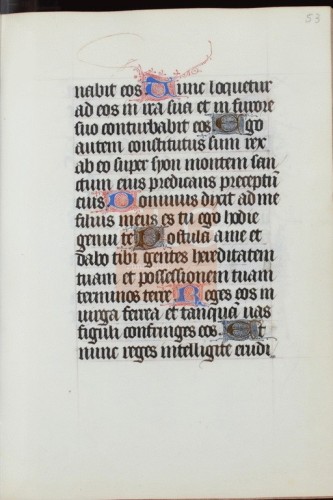 53
nabit eos Tunc loquetur
ad eos in ira sua et in furore
suo conturbabit eos Ego
autem constitutus sum rex
ab eo super syon montem san
ctum eius predicans preceptū
eius Dominus dixit ad me
filius meus es tu ego hodie
genui te Postula a me et
dabo tibi gentes hereditatem
tuam et possessionem tuam
terminos terre Reges eos in
virga ferrea et tanquā vas
figuli confringes eos Et
nunc reges intelligite erudi